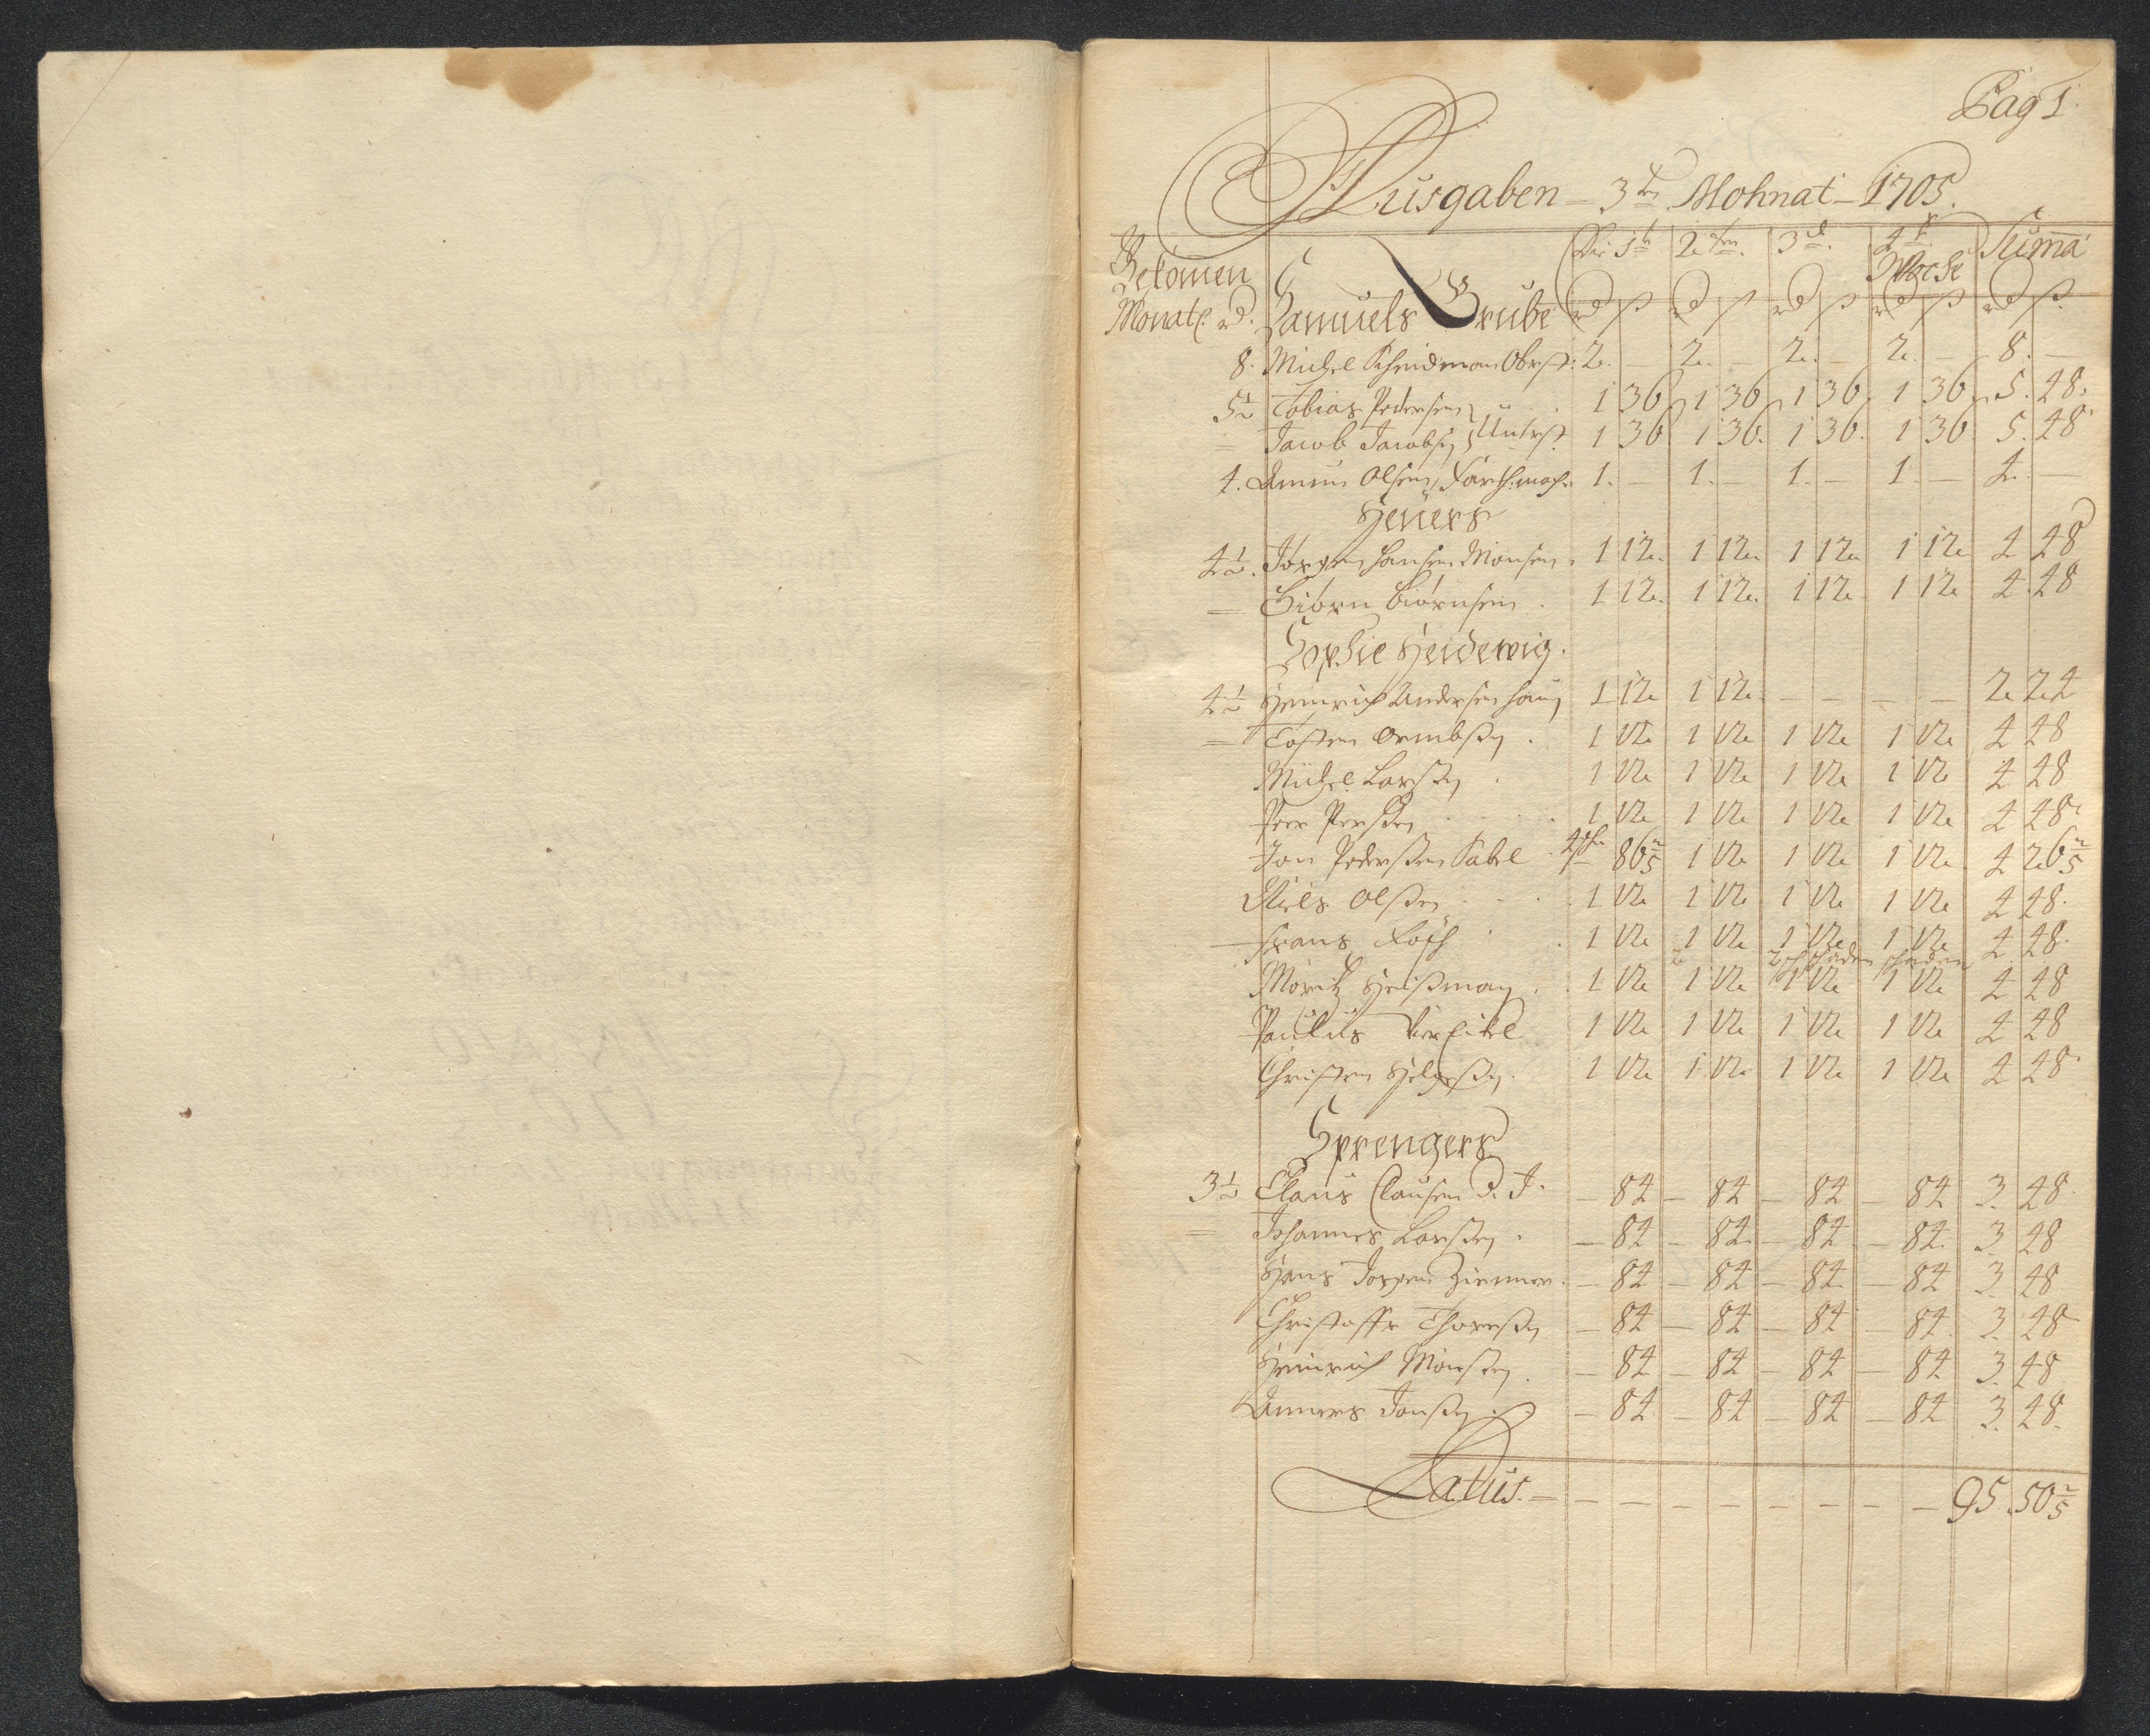 Pag 1.
Ausgaben - 3ten Mohnat - 1705.
Bekomen Die 1te 2ten 3te 4te Woche Suma
Monatl. rd. Samuels Grube rd ß rd ß rd ß rd ß rd ß
8. Michel Schneidman Obrst: 2. — 2. — 2. — 2. — 8. —
5½ Tobias Pedersen 1 36 1 36 1 36 1 36 5. 48.
= Jacob Jacobsen Untrst 1 36 1 36. 1 36. 1 36. 5. 48
4. Amun Olsen 1. — 1. — 1. — 1. — 4. —
Heüers
4½. Jörgen Hansen Monsen. 1 12. 1 12. 1 12 1 12 4 48
= Biörn Biörnsen. 1 12. 1 12. 1 12. 1 12 4. 48
Sophie Heidewig.
4½ Heinrich Andersen Haug 1 12 1 12. — — — — 2 24
= Tosten Ormbßen. 1 12 1 12 1 12 1 12 4 48
Michel Larßen. 1 12 1 12 1 12 1 12 4 48
Peer Perßen 1 12 1 12 1 12 1 12 4 48
Jon Pederßen Sabel 4 86 2/5 1 12 1 12 1 12 4 26 2/5
Niels Olßen 1 12 1 12 1 12 1 12 4 48.
Frans Rösch 1 12 1 12 1 12 1 12 4 48.
Moritz Heißman. 1 12 1 12 1 12 1 12 4 48
Paulus Vierfitel 1 12 1 12 1 12 1 12 4 48
Christen Helgeßen. 1 12 1 12 1 12 1 12 4 48
Sprengers
3½ Claus Clausen d. J. — 84 — 84 — 84 — 84 3. 48
= Johannes Larßen. — 84 — 84 — 84 — 84. 3. 48
Hans Jörgen Zimmer. — 84 — 84 — 84 — 84 3. 48
Christoffer Thoreßen — 84 — 84 — 84 — 84. 3. 48
Heinrich Monßen. — 84 — 84 — 84 — 84 3. 48
Anners Jonßen. — 84 — 84 — 84 — 84 3. 48.
Latus. — — — — — — — — — 95. 50 2/5